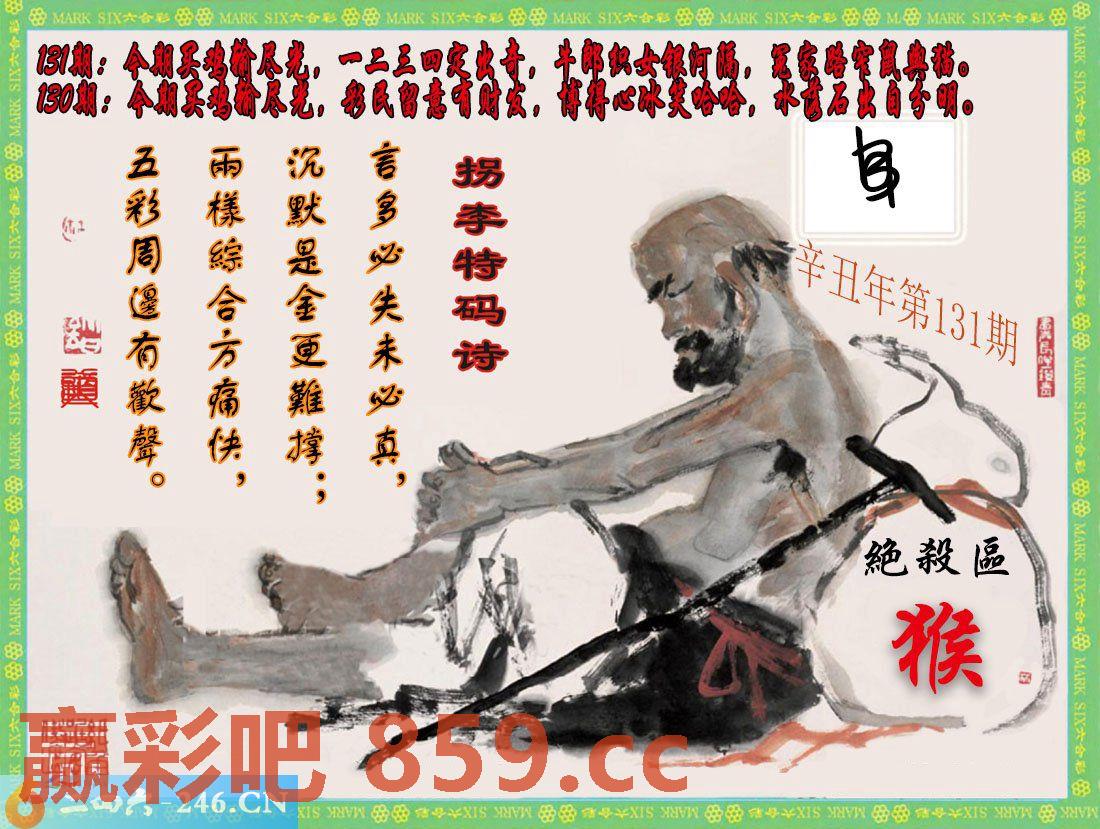 MARK SIX六合彩 MARK SIX六合彩 MARK SIX六合彩 MARK SIX六合彩 MARK SIX六合彩 MARK SIX六合彩 MARK SIX六合彩 MARK SIX六合彩
131期：今期买鸡输尽光，一二三四定出奇，牛郎织女银河隔，冤家路窄鼠與猫。
130期：今期买鸡输尽光，彩民留意有财发，博得心冰笑哈哈，水落石出自分明。
拐李特码诗
言多必失未必真，
沉默是金更難撑；
兩樣綜合方痛快，
五彩周邊有歡聲。
辛丑年第131期
絕殺區
猴
赢彩吧 859.cc
二四六-246.CN